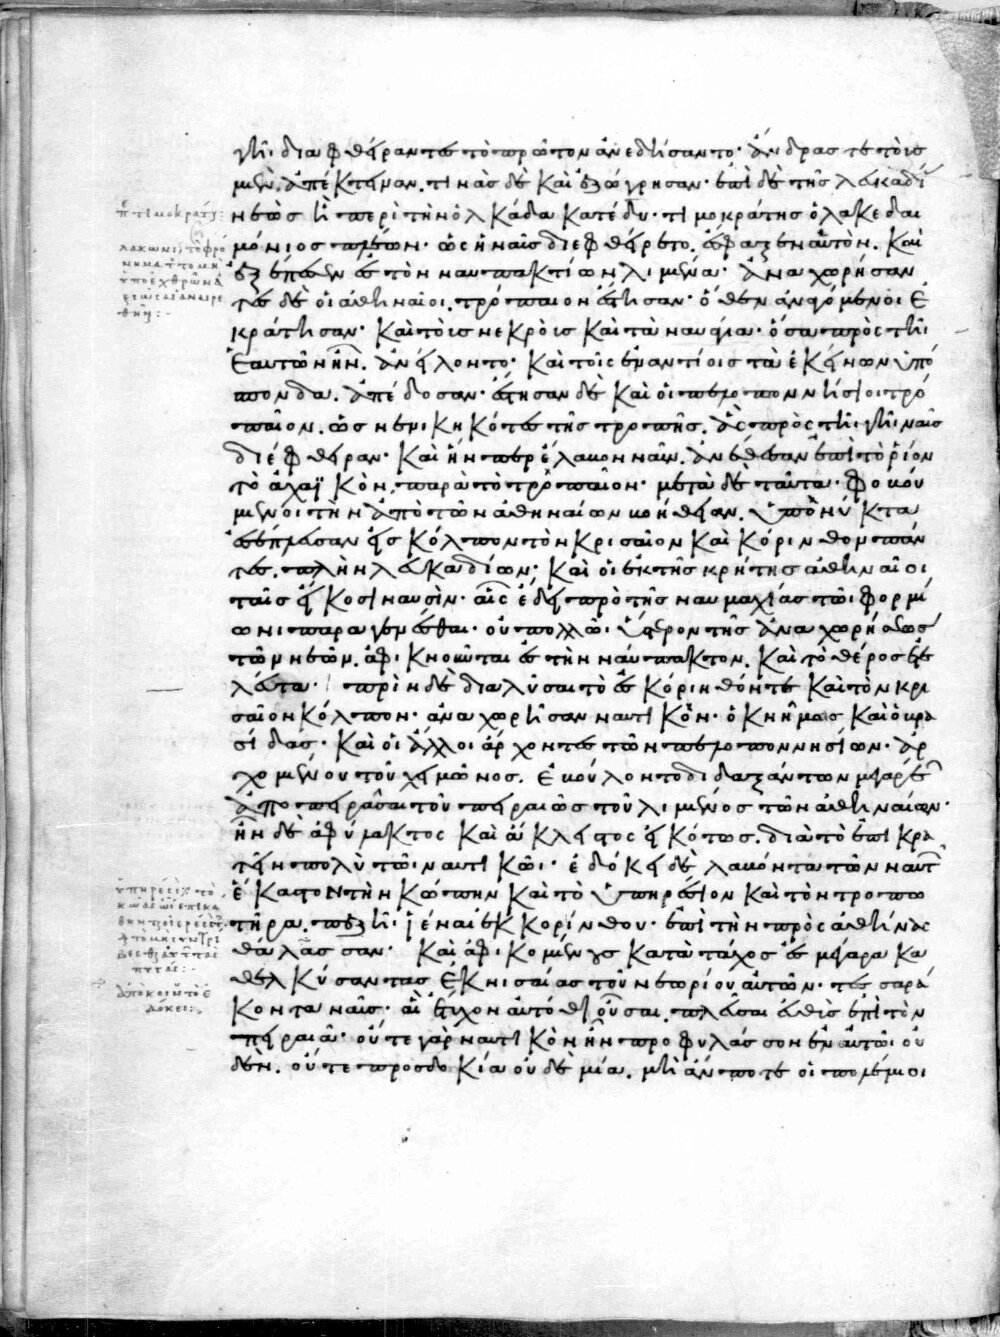 γῆι διαφθείραντες τὸ πρῶτον ἀνεδήσαντο· ἄνδρας τὲ τοὺς
μὲν, ἀπέκτειναν. τινὰς δὲ καὶ ἐζώγρησαν· ἐπὶ δὲ τῆς λευκαδί
νεὼς ἣ περὶ τὴν ὁλκάδα κατέδυ· τιμοκράτης ὁ λακεδαι
μόνιος πλέων· ὡς ἡ ναῦς διεφθείρετο. ἔσφαξεν ἑαυτὸν. καὶ
ἐξέπεσεν ἐς τὸν ναυπακτίων λιμένα· ἀναχωρήσαν
τες δὲ οἱ ἀθηναῖοι, τρόπαιον ἔστησαν· ὅθεν ἀναγόμενοι ἐ
κράτησαν· καὶ τοὺς νεκροὺς καὶ τὰ ναυάγια· ὅσα πρὸς τῆι
ἑαυτῶν ἦν. ἀνείλοντο· καὶ τοῖς ἐναντίοις τὰ ἐκείνων ὑπό
σπονδα. ἀπέδοσαν· ἔστησαν δὲ καὶ οἱ πελοποννήσιοι τρό
παιον. ὡς νενικηκότες τῆς τροπῆς. ἃς πρὸς τῆι γῆι ναῦς
διέφθειραν· καὶ ἥνπερ ἔλαβον ναῦν. ἀνέθεσαν ἐπὶ τὸ ῥίον
τὸ ἀχαϊκὸν, παρὰ τὸ τρόπαιον· μετὰ δὲ ταῦτα· φοβού
μενοι τὴν ἀπὸ τῶν ἀθηναίων βοήθειαν. ὑπὸ νύκτα
ἐσέπλευσαν ἐς κόλπον τὸν κρισαῖον καὶ κόρινθον πάν
τες. πλὴν λευκαδίων· καὶ οἱ ἐκ τῆς κρήτης ἀθηναῖοι
ταῖς εἴκοσι ναυσὶν· αἷς ἔδει πρὸ τῆς ναυμαχίας τῶι φορμί
ωνι παραγενέσθαι· οὐ πολλῶι· ὕστερον τῆς ἀναχωρήσεως
τῶν νεῶν. ἀφικνοῦνται ἐς τὴν ναύπακτον. καὶ τὸ θέρος ἐτε
λεύτα· πρὶν δὲ διαλῦσαι τὸ ἐς κόρινθόν τε καὶ τὸν κρι
σαῖον κόλπον· ἀναχωρῆσαν ναυτικὸν· ὁ κνῆμος καὶ ὁ βρα
σίδας· καὶ οἱ ἄλλοι ἄρχοντες τῶν πελοποννησίων· ἀρ
χομένου τοῦ χειμῶνος. ἐβούλοντο διδαξάντων μεγαρέων
ἀποπειρᾶσαι τοῦ πειραιῶς τοῦ λιμένος τῶν ἀθηναίων·
ἦν δὲ ἀφύλακτος καὶ ἄκλειστος εἰκότως. διὰ τὸ ἐπικρα
τεῖν πολὺ τῶι ναυτικῶι· ἐδόκει δὲ λαβόντα τῶν ναυτῶν
ἕκαστον τὴν κώπην καὶ τὸ ὑπηρέσιον καὶ τὸν τροπω
τῆρα. πεζῆι ἰέναι ἐκ κορίνθου· ἐπὶ τὴν πρὸς ἀθήνας
θάλασσαν· καὶ ἀφικομένους κατὰ τάχος ἐς μέγαρα κα
θελκύσαντας ἐκ νισαίας τοῦ νεωρίου αὐτῶν· τεσσαρά
κοντα ναῦς· αἳ ἔτυχον αὐτόθι οὖσαι. πλεῦσαι εὐθὺς ἐπὶ τὸν
πειραιᾶ· οὔτε γὰρ ναυτικὸν ἦν προφυλάσσον ἐν αὐτῶι οὐ
δὲν. οὔτε προσδοκία οὐδεμία. μὴ ἄν ποτε οἱ πολέμιοι